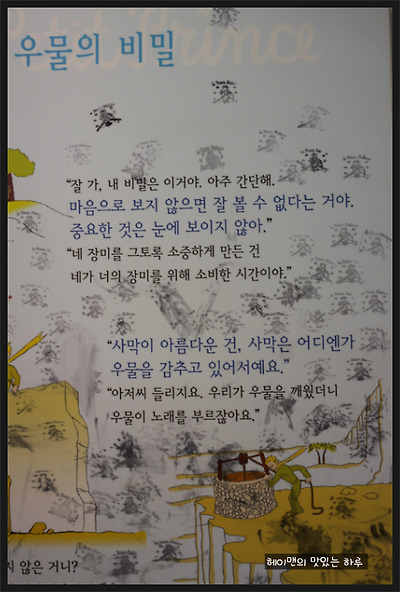 Petit Prince
우물의 비밀
“잘 가, 내 비밀은 이거야. 아주 간단해.
마음으로 보지 않으면 잘 볼 수 없다는 거야.
중요한 것은 눈에 보이지 않아.”
“네 장미를 그토록 소중하게 만든 건
네가 너의 장미를 위해 소비한 시간이야.”
“사막이 아름다운 건, 사막은 어디엔가
우물을 감추고 있어서예요.”
“아저씨 들리지요. 우리가 우물을 깨웠더니
우물이 노래를 부르잖아요.”
않은 거니?
헤이맨의 맛있는 하루